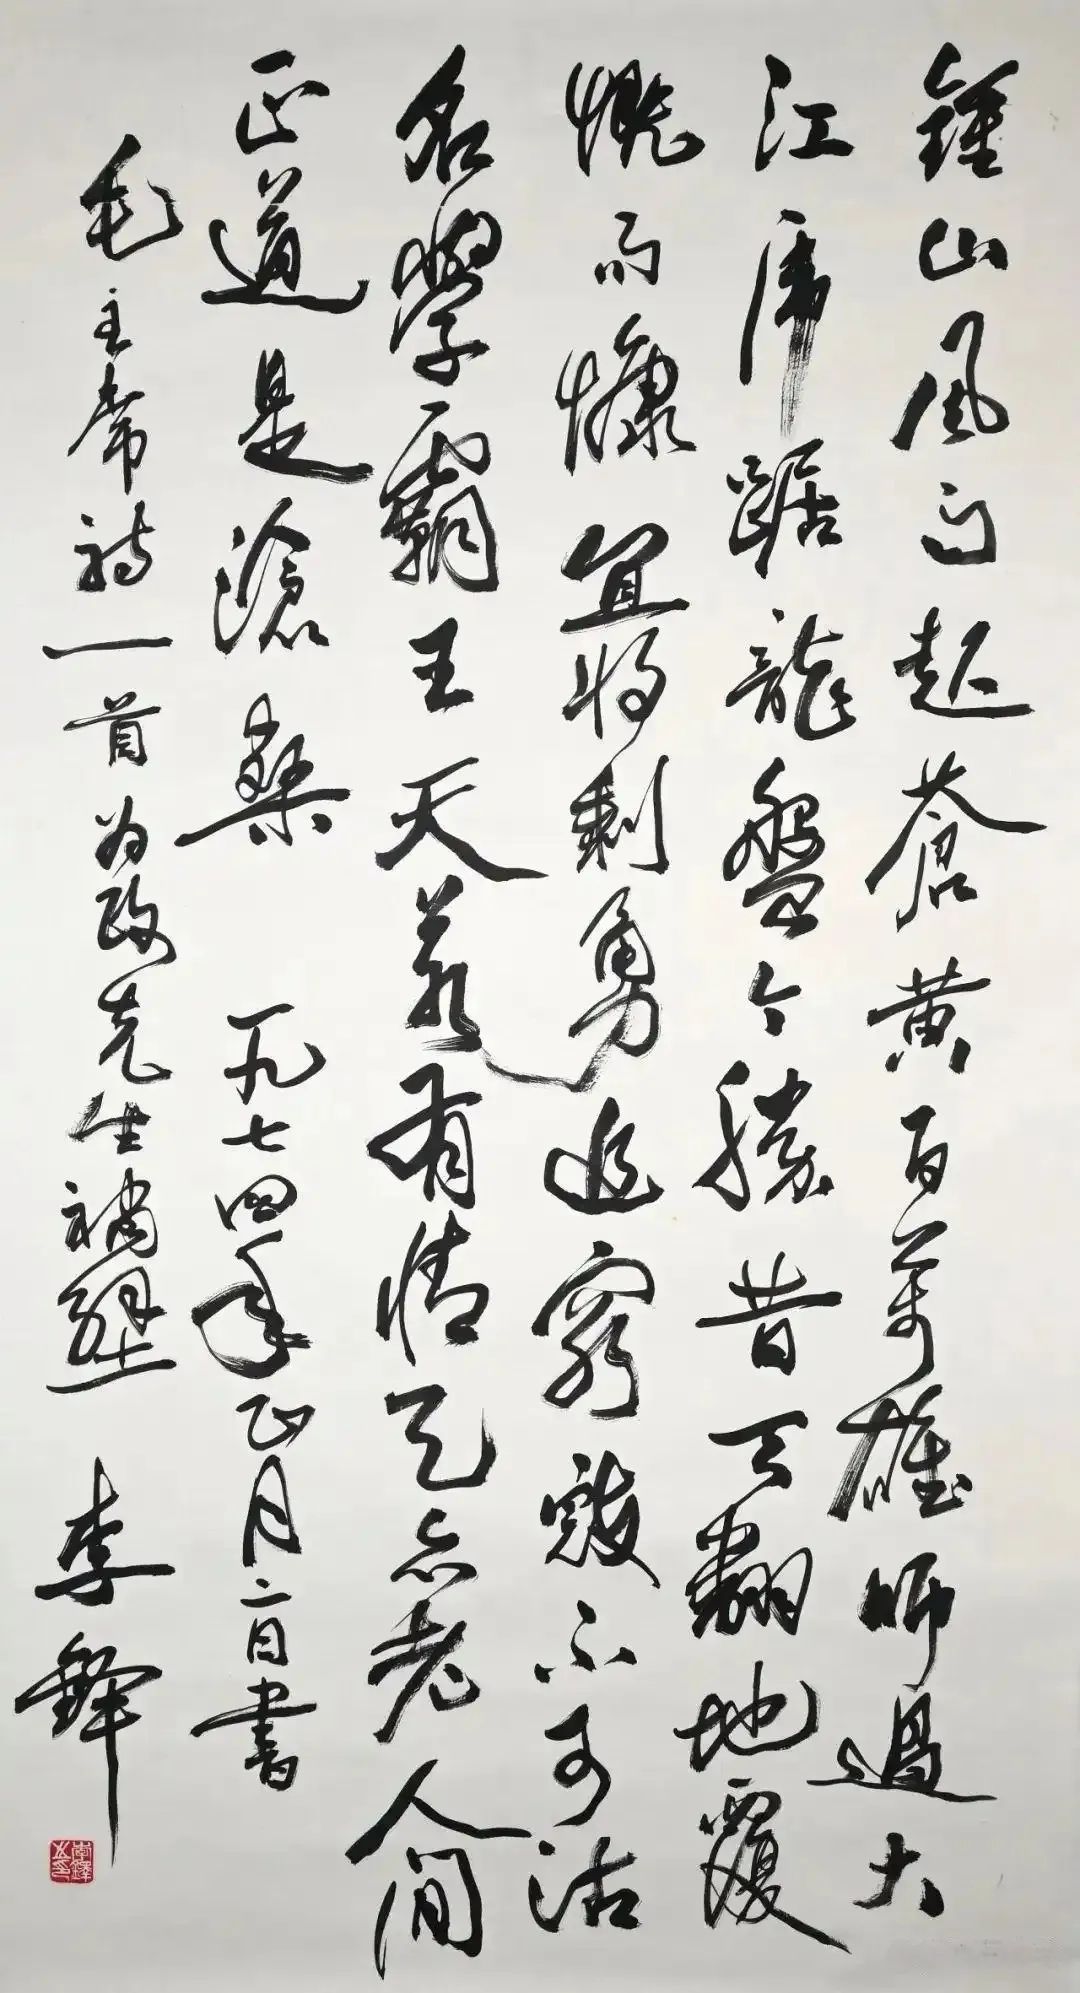 鍾山風雨起蒼黃百萬雄師過大
江虎踞龍盤今勝昔天翻地覆
慨而慷宜將剩勇追窮寇不可沽
名學霸王天若有情天亦老人間
正道是滄桑 一九七四年正月二日書
毛主席詩一首为政先生補壁 李鐸
李鐸之印